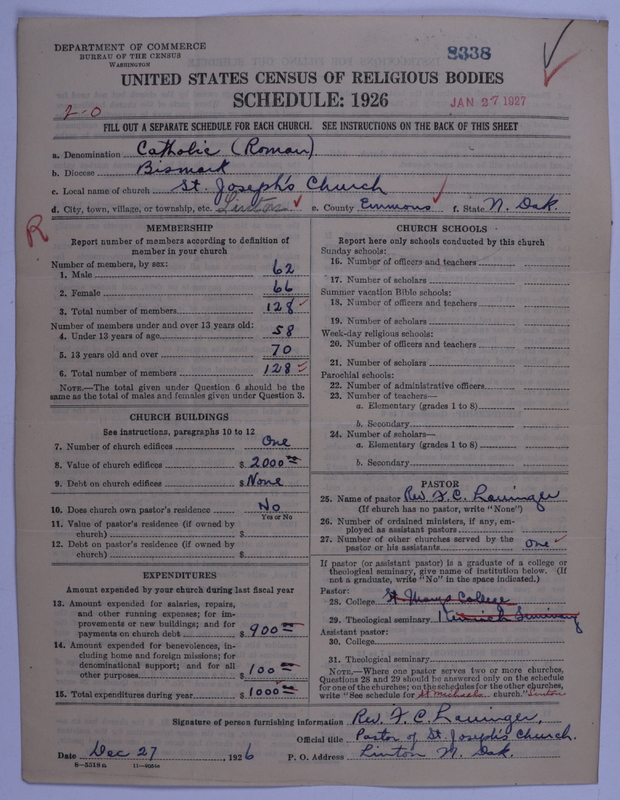 DEPARTMENT OF COMMERCE
BUREAU OF THE CENSUS
WASHINGTON
8338
UNITED STATES CENSUS OF RELIGIOUS BODIES
SCHEDULE: 1926
JAN 27 1927
2-0
FILL OUT A SEPARATE SCHEDULE FOR EACH CHURCH. SEE INSTRUCTIONS ON THE BACK OF THIS SHEET
a. Denomination Catholic (Roman)
b. Diocese Bismark
c. Local name of church St. Joseph's Church
d. City, town, village, or township, etc. Linton e. County Emmons f. State N. Dak.
R
MEMBERSHIP
Report number of members according to definition of
member in your church
Number of members, by sex:
1. Male 62
2. Female 66
3. Total number of members 128
Number of members under and over 13 years old:
4. Under 13 years of age 58
5. 13 years old and over 70
6. Total number of members 128
NOTE.—The total given under Question 6 should be
same as the total of males and females given under Question 3.
CHURCH BUILDINGS
See instructions, paragraphs 10 to 12
7. Number of church edifices One
8. Value of church edifices $ 2000 00
9. Debt on church edifices $ None
10. Does church own pastor's residence No
Yes or No
11. Value of pastor's residence (if owned by
church) $
12. Debt on pastor's residence (if owned by
church) $
EXPENDITURES
Amount expended by your church during last fiscal year
13. Amount expended for salaries, repairs,
and other running expenses; for im-
provements or new buildings; and for
payments on church debt $ 900 00
14. Amount expended for benevolences, in-
cluding home and foreign missions; for
denominational support; and for all
other purposes $ 100 00
15. Total expenditures during year $ 1000 00
CHURCH SCHOOLS
Report here only schools conducted by this church
Sunday schools:
16. Number of officers and teachers
17. Number of scholars
Summer vacation Bible schools:
18. Number of officers and teachers
19. Number of scholars
Week-day religious schools:
20. Number of officers and teachers
21. Number of scholars
Parochial schools:
22. Number of administrative officers
23. Number of teachers—
a. Elementary (grades 1 to 8)
b. Secondary
24. Number of scholars—
a. Elementary (grades 1 to 8)
b. Secondary
PASTOR
25. Name of pastor Rev. F. C. Lauinger
(If church has no pastor, write "None")
26. Number of ordained ministers, if any, em-
ployed as assistant pastors
27. Number of other churches served by the
pastor or his assistants One
If pastor (or assistant pastor) is a graduate of a college or
theological seminary, give name of institution below. (If
not a graduate, write "No" in the space indicated.)
Pastor:
28. College St. Marys College
29. Theological seminary Kenrick Seminary
Assistant pastor:
30. College
31. Theological seminary
NOTE.—Where one pastor serves two or more churches,
Questions 28 and 29 should be answered only on the schedule
for one of the churches; on the schedules for the other churches,
write "See schedule for St Michaels church." Linton
Signature of person furnishing information Rev. F. C. Lauinger,
Official title Pastor of St. Joseph's Church.
Date Dec 27, 1926 P. O. Address Linton N. Dak.